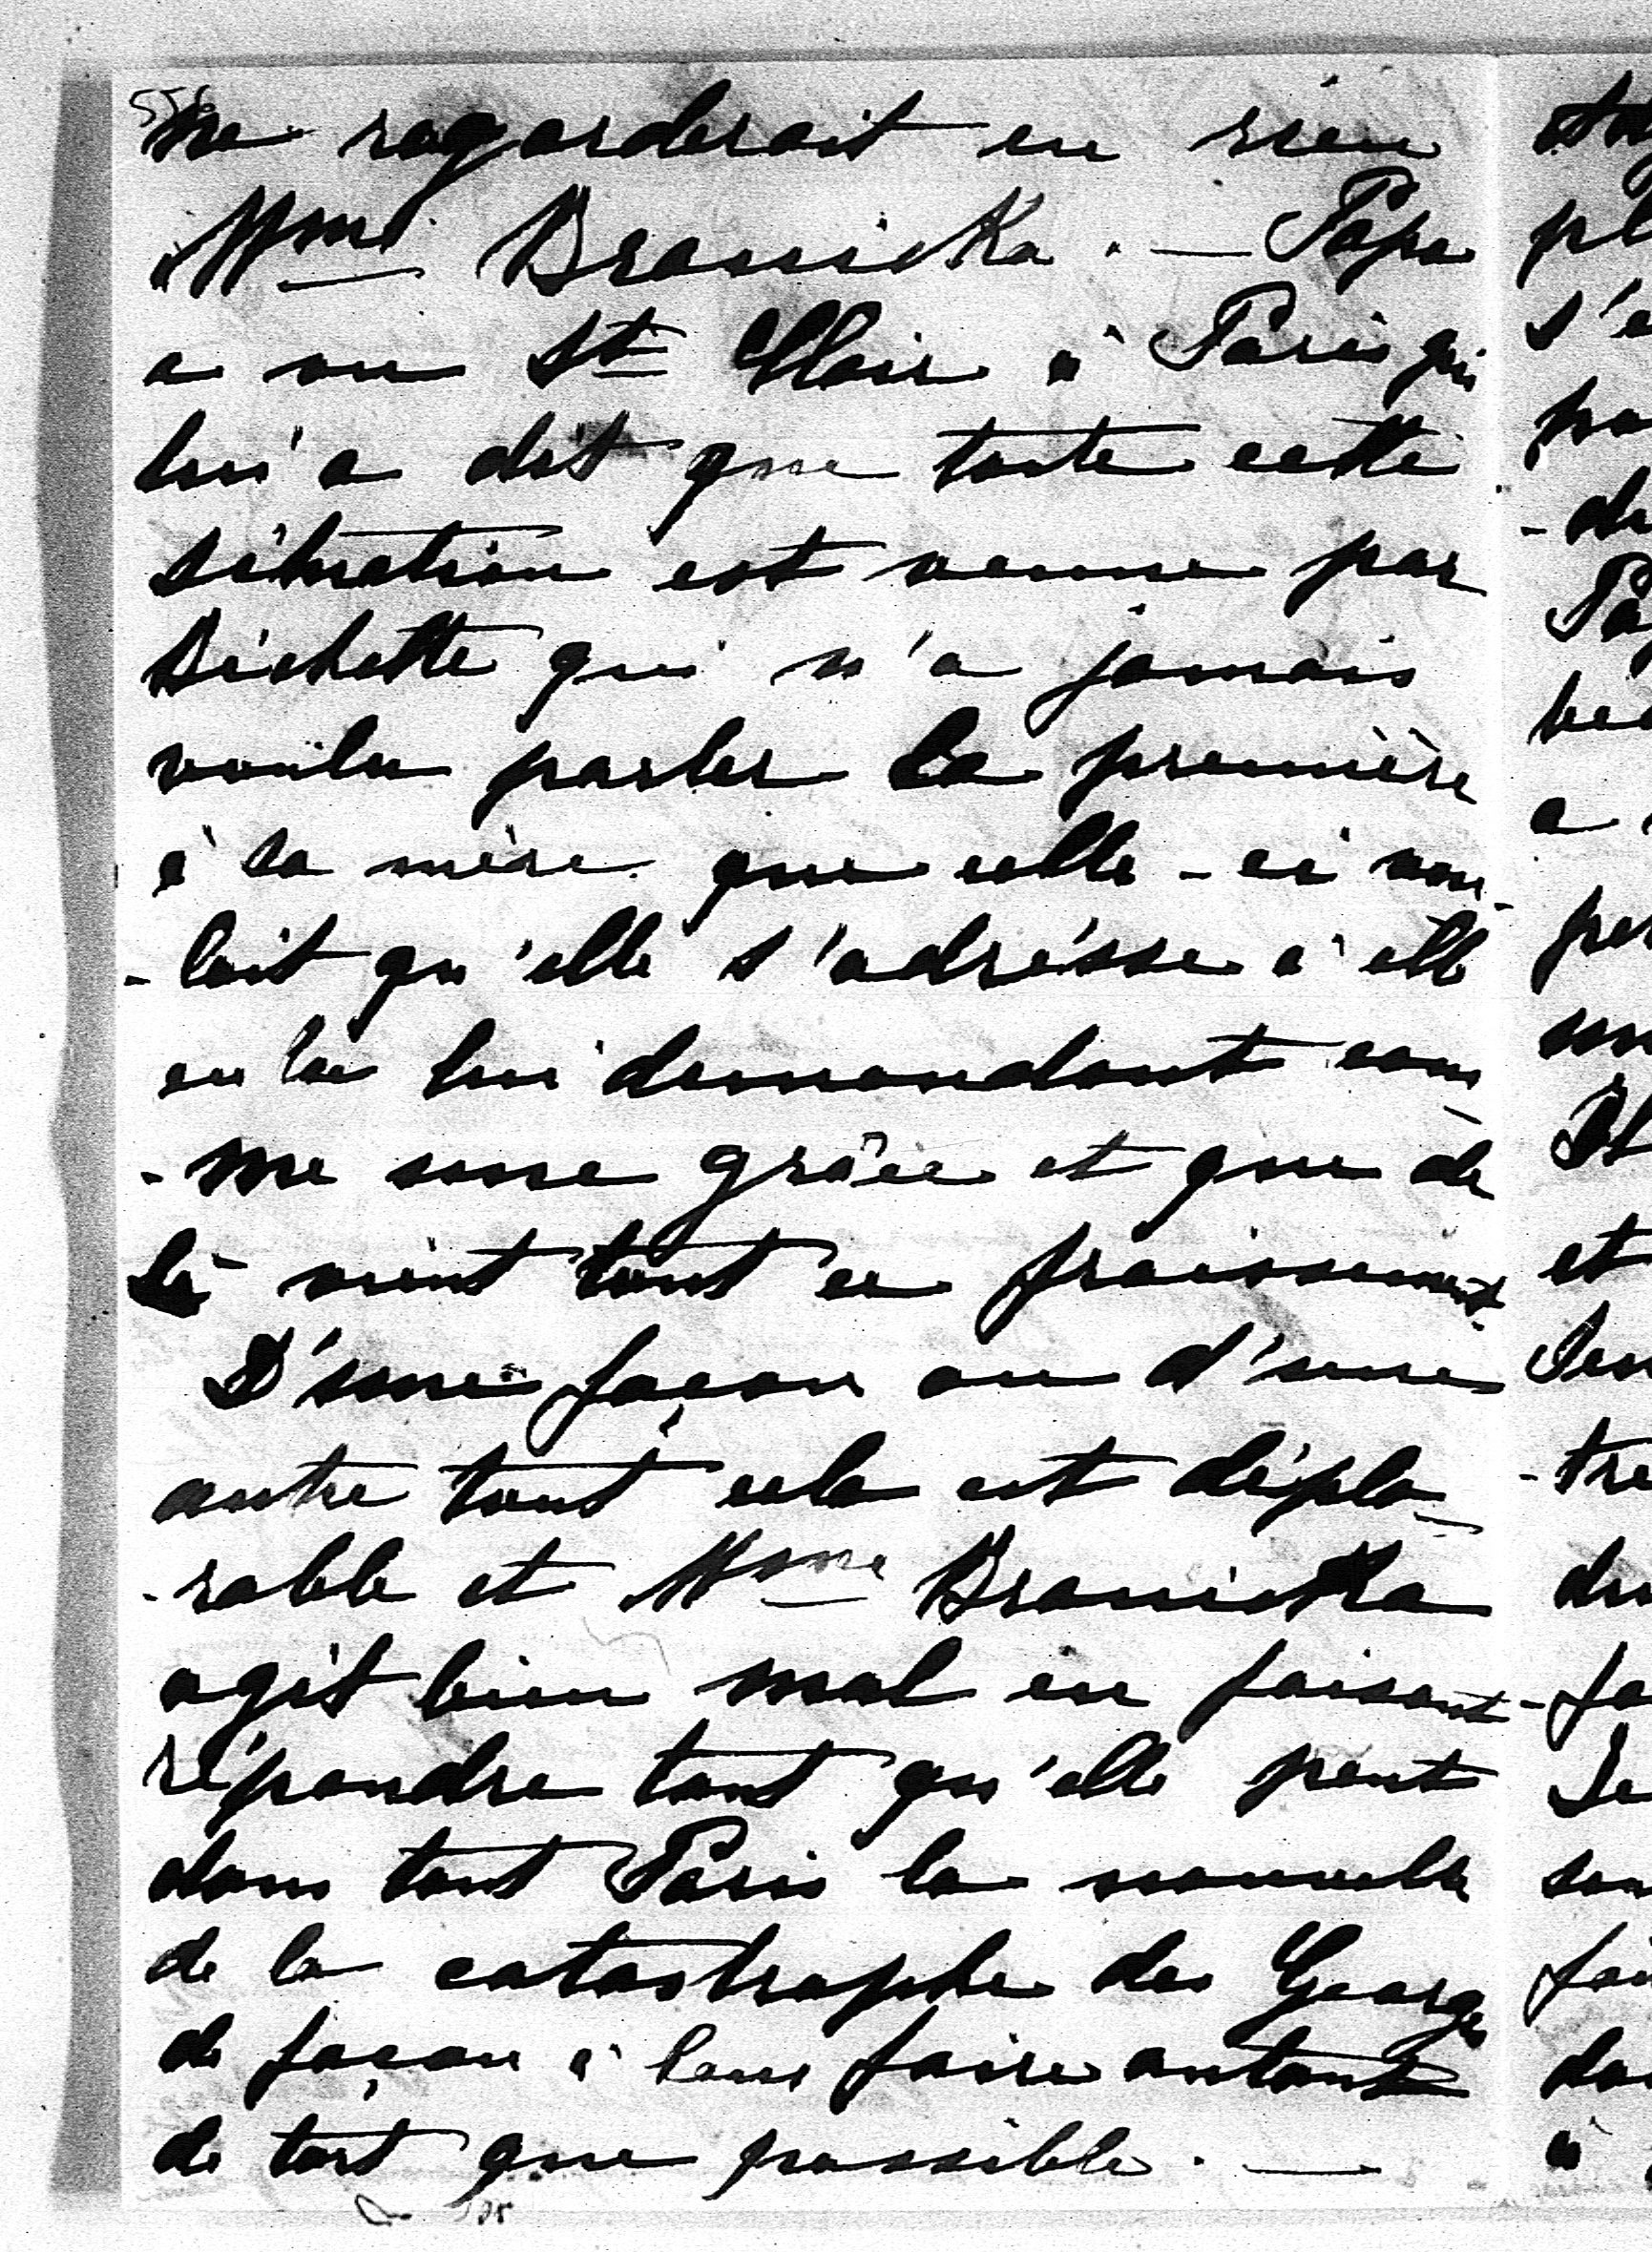 ne regarderait en rien
Mme Branicka. — Papa
a vu St Clair à Paris qui
lui a dit que toute cette
situation est venue par
Bichette qui n'a jamais
voulu parler la première
à sa mère que celle-ci vou-
-lait qu'elle s'adresse à elle
en lui demandant com-
-me une grâce et que de
là vient tout ce froissement.
D'une façon ou d'une
autre tout cela est déplo-
-rable et Mme Branicka
agit bien mal en faisant
répandre tant qu'elle peut
dans tout Paris la nouvelle
de la catastrophe des Georges
de façon à leur faire autant
de tort que possible. —